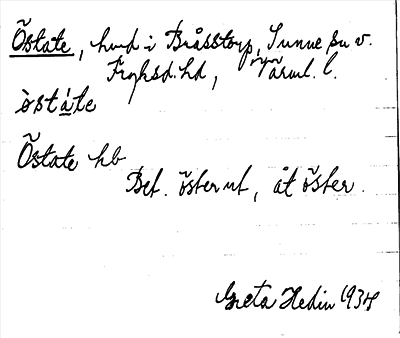 Östate, hmd i Bråsstorp, Sunne su v.
Fryksd. hd, Värml. l.
òstáte
Östate hb
Bet. österut, åt öster.
Greta Hedin 1934